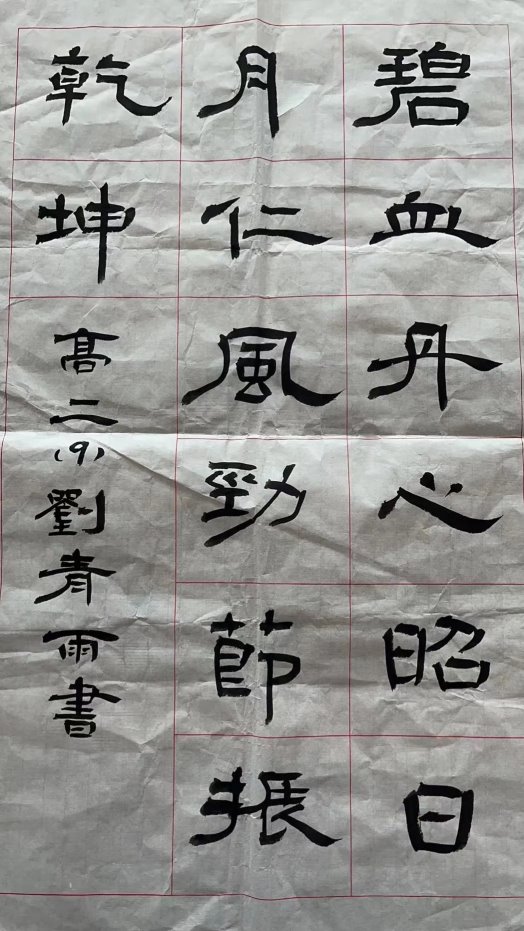 碧血丹心昭日
月仁風勁節振
乾坤
高二(9)劉青雨書